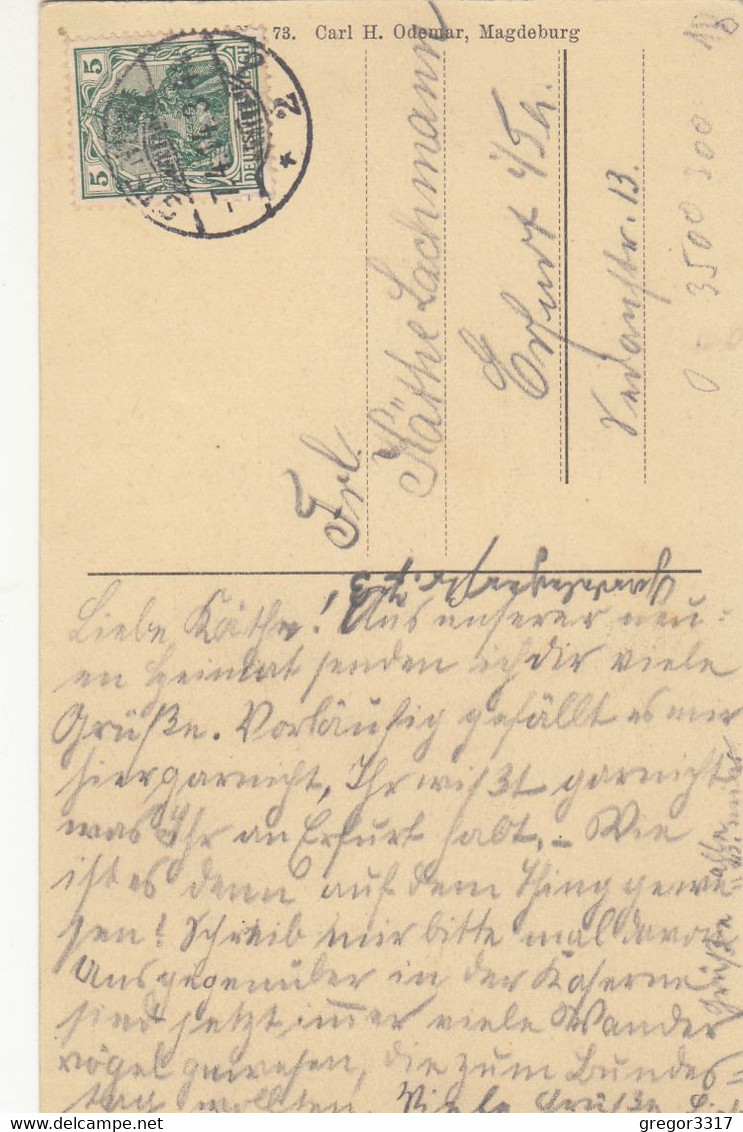 73. Carl H. Odemar, Magdeburg
5 5
2
Frl.
Käthe Lachmann
Erfurt i/Th.
Sedanstr. 13.
3500 300
Liebe Käthe! Aus unserer neu-
en Heimat senden ich dir viele
Grüße. Vorläufig gefällt es mir
hier garnicht, Ihr wißt garnicht
was Ihr an Erfurt habt. – Wie
ist es denn auf dem Thing gewe-
sen! Schreib mir bitte mal davon
Uns gegenüber in der Kaserne
sind jetzt immer viele Wander
vögel gewesen, die zum Bundes-
tag wollten. Viele Grüße
Grüße
gregor3317